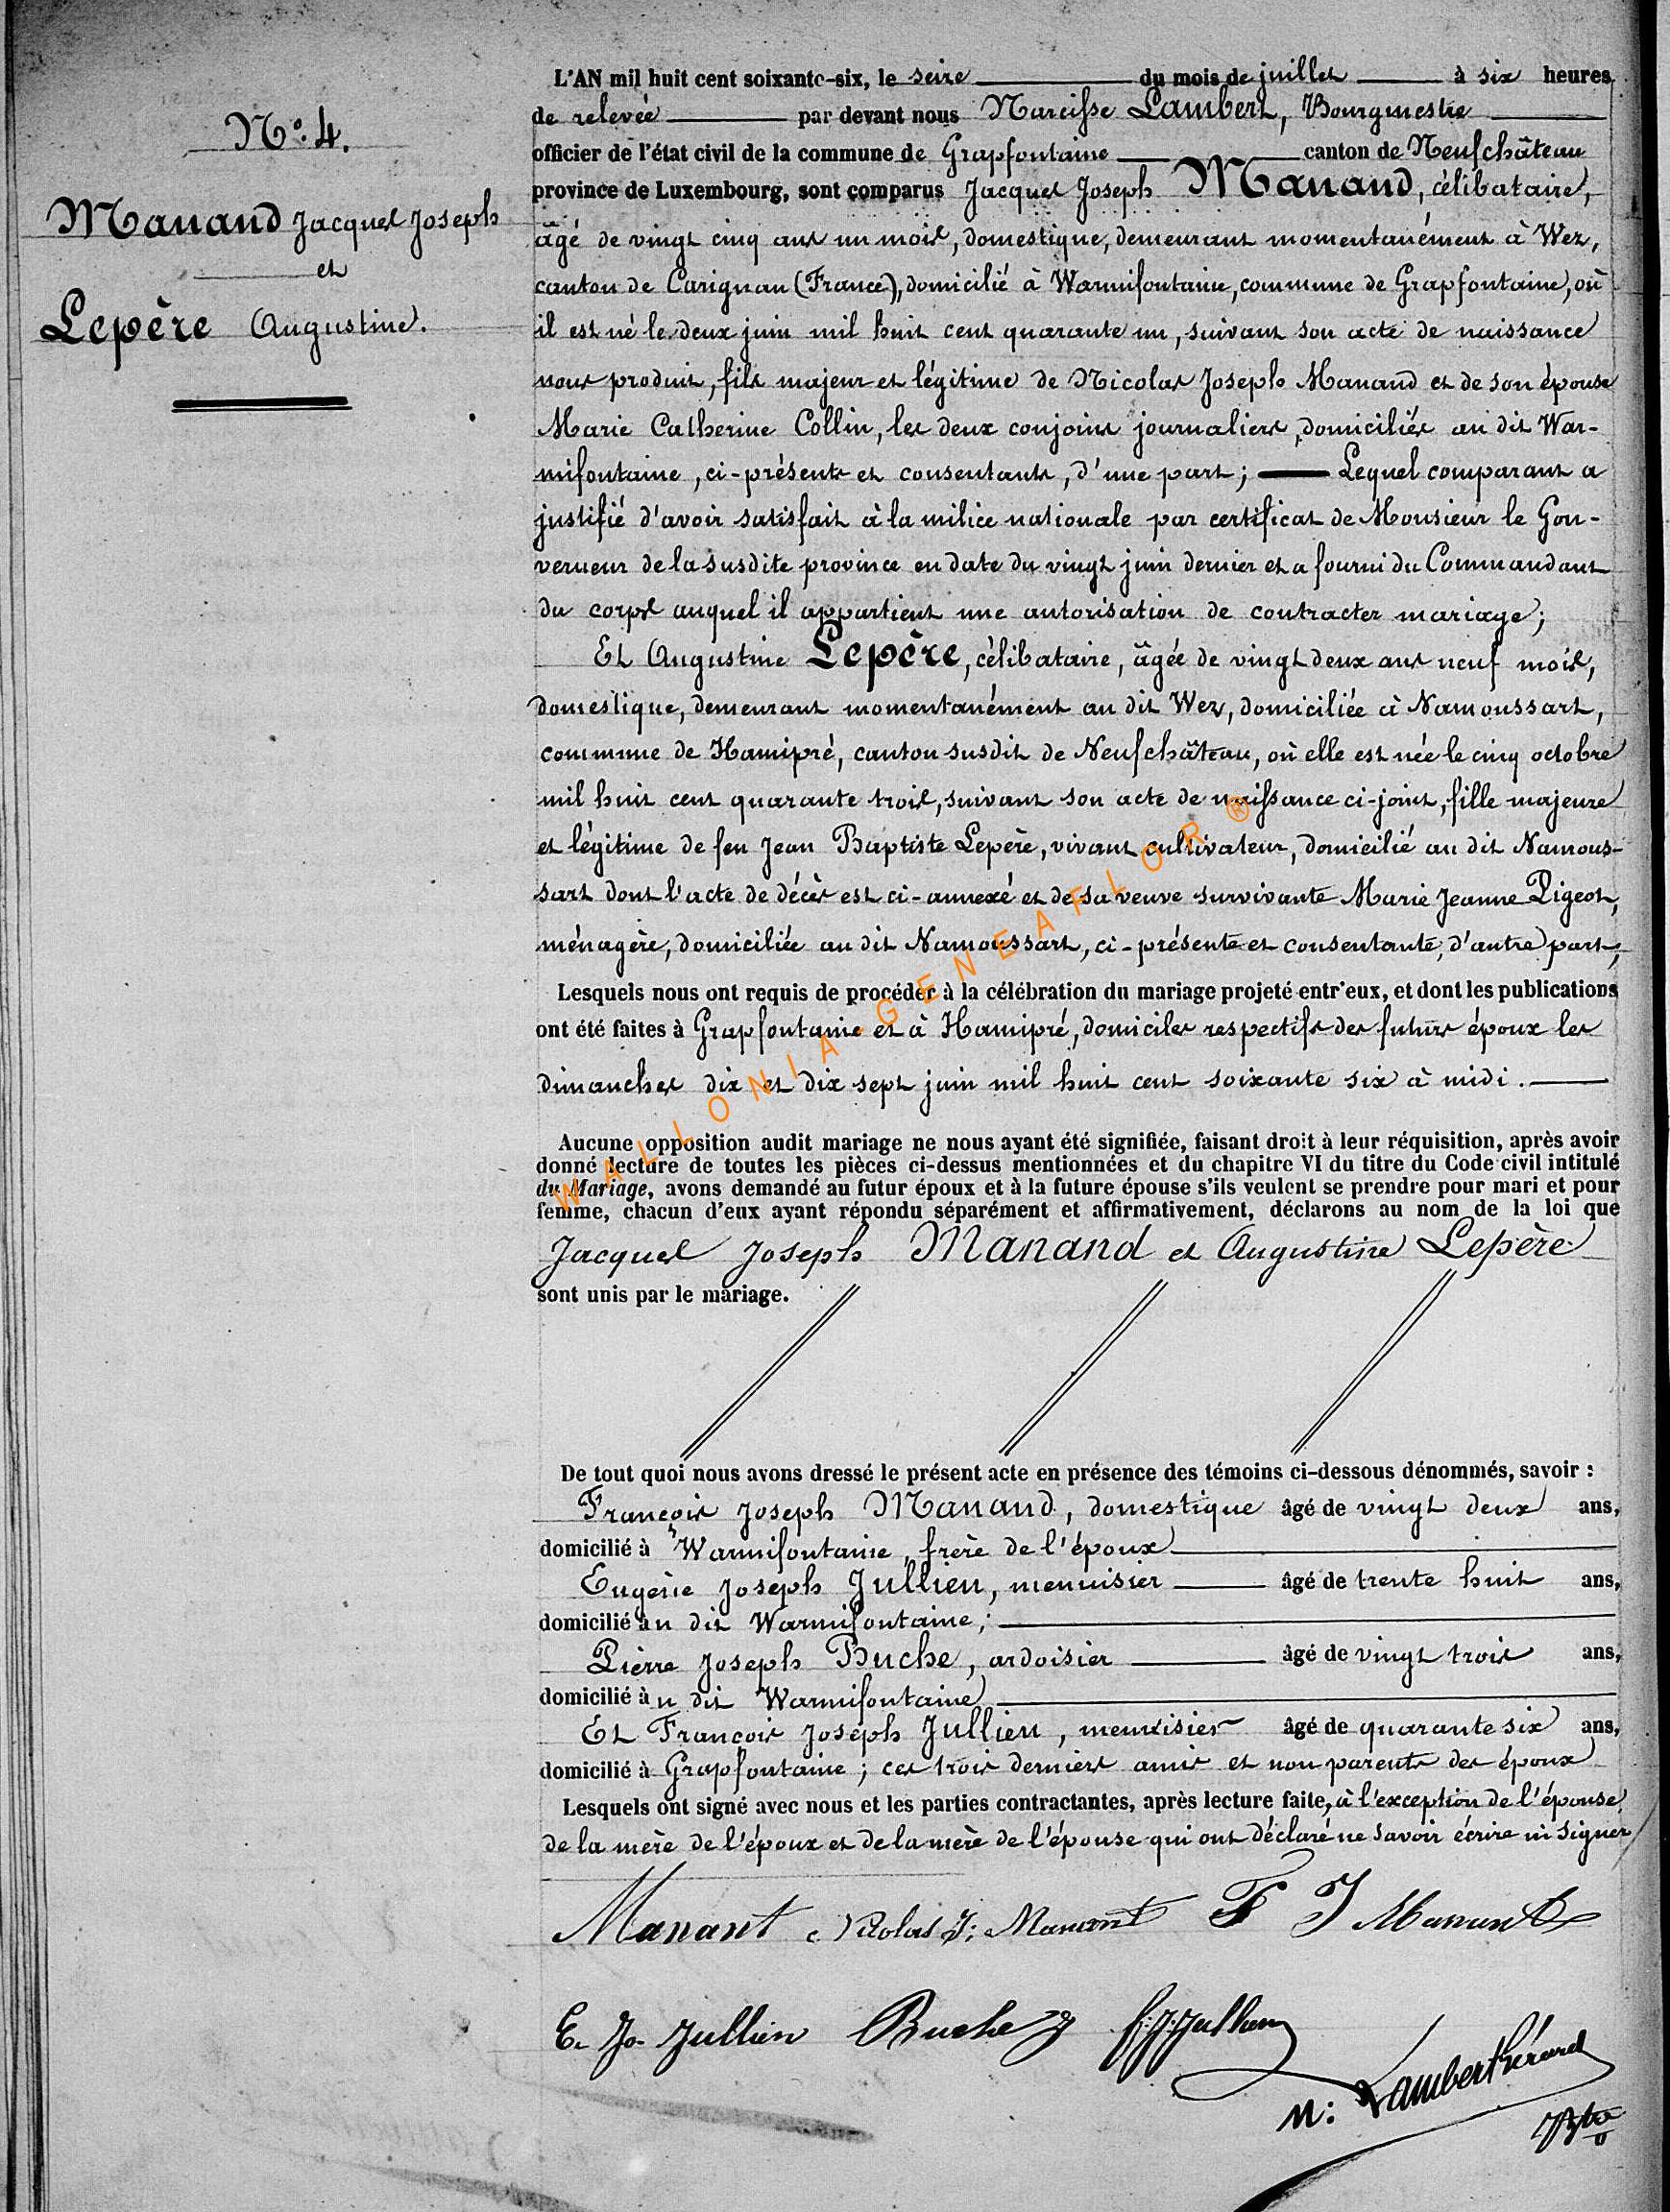 N° 4.
Manand Jacques Joseph
et
Lepère Augustine.
L'AN mil huit cent soixante-six, le seize du mois de juillet à six heures
de relevée par devant nous Narcisse Lambert, Bourgmestre
officier de l'état civil de la commune de Grapfontaine canton de Neufchâteau
province de Luxembourg, sont comparus Jacques Joseph Manand, célibataire,
âgé de vingt cinq ans un mois, domestique, demeurant momentanément à Wez,
canton de Carignan (France), domicilié à Warmifontaine, commune de Grapfontaine, où
il est né le deux juin mil huit cent quarante un, suivant son acte de naissance
nous produit, fils majeur et légitime de Nicolas Joseph Manand et de son épouse
Marie Catherine Collin, les deux conjoins journaliers, domiciliés au dit War-
mifontaine, ci-présents et consentants, d'une part; Lequel comparant a
justifié d'avoir satisfait à la milice nationale par certificat de Monsieur le Gou-
verneur de la susdite province en date du vingt juin dernier et a fourni du Commandant
du corps auquel il appartient une autorisation de contracter mariage;
Et Augustine Lepère, célibataire, âgée de vingt deux ans neuf mois,
domestique, demeurant momentanément au dit Wez, domiciliée à Namoussart,
commune de Hamipré, canton susdit de Neufchâteau, où elle est née le cinq octobre
mil huit cent quarante trois, suivant son acte de naissance ci-joint, fille majeure
et légitime de feu Jean Baptiste Lepère, vivant cultivateur, domicilié au dit Namous-
sart dont l'acte de décès est ci-annexé et de sa veuve survivante Marie Jeanne Pigeot,
ménagère, domiciliée au dit Namoussart, ci-présente et consentante, d'autre part,
Lesquels nous ont requis de procéder à la célébration du mariage projeté entr'eux, et dont les publications
ont été faites à Grapfontaine et à Hamipré, domiciles respectifs des futurs époux les
dimanches dix et dix sept juin mil huit cent soixante six à midi.
Aucune opposition audit mariage ne nous ayant été signifiée, faisant droit à leur réquisition, après avoir
donné lecture de toutes les pièces ci-dessus mentionnées et du chapitre VI du titre du Code civil intitulé
du Mariage, avons demandé au futur époux et à la future épouse s'ils veulent se prendre pour mari et pour
femme, chacun d'eux ayant répondu séparément et affirmativement, déclarons au nom de la loi que
Jacques Joseph Manand et Augustine Lepère
sont unis par le mariage.
De tout quoi nous avons dressé le présent acte en présence des témoins ci-dessous dénommés, savoir :
François Joseph Manand, domestique âgé de vingt deux ans,
domicilié à Warmifontaine, frère de l'époux
Eugène Joseph Jullien, menuisier âgé de trente huit ans,
domicilié au dit Warmifontaine;
Pierre Joseph Buche, ardoisier âgé de vingt trois ans,
domicilié au dit Warmifontaine
Et François Joseph Jullien, menuisier âgé de quarante six ans,
domicilié à Grapfontaine; ces trois derniers amis et non parents des époux
Lesquels ont signé avec nous et les parties contractantes, après lecture faite, à l'exception de l'épouse,
de la mère de l'époux et de la mère de l'épouse qui ont déclaré ne savoir écrire ni signer
Manant Nicolas J: Manant F J Manant
E. Jo. Jullien Buche J f:J:Jullien
N: Lambert hérard
WALLONIA-GENEAFLOR®